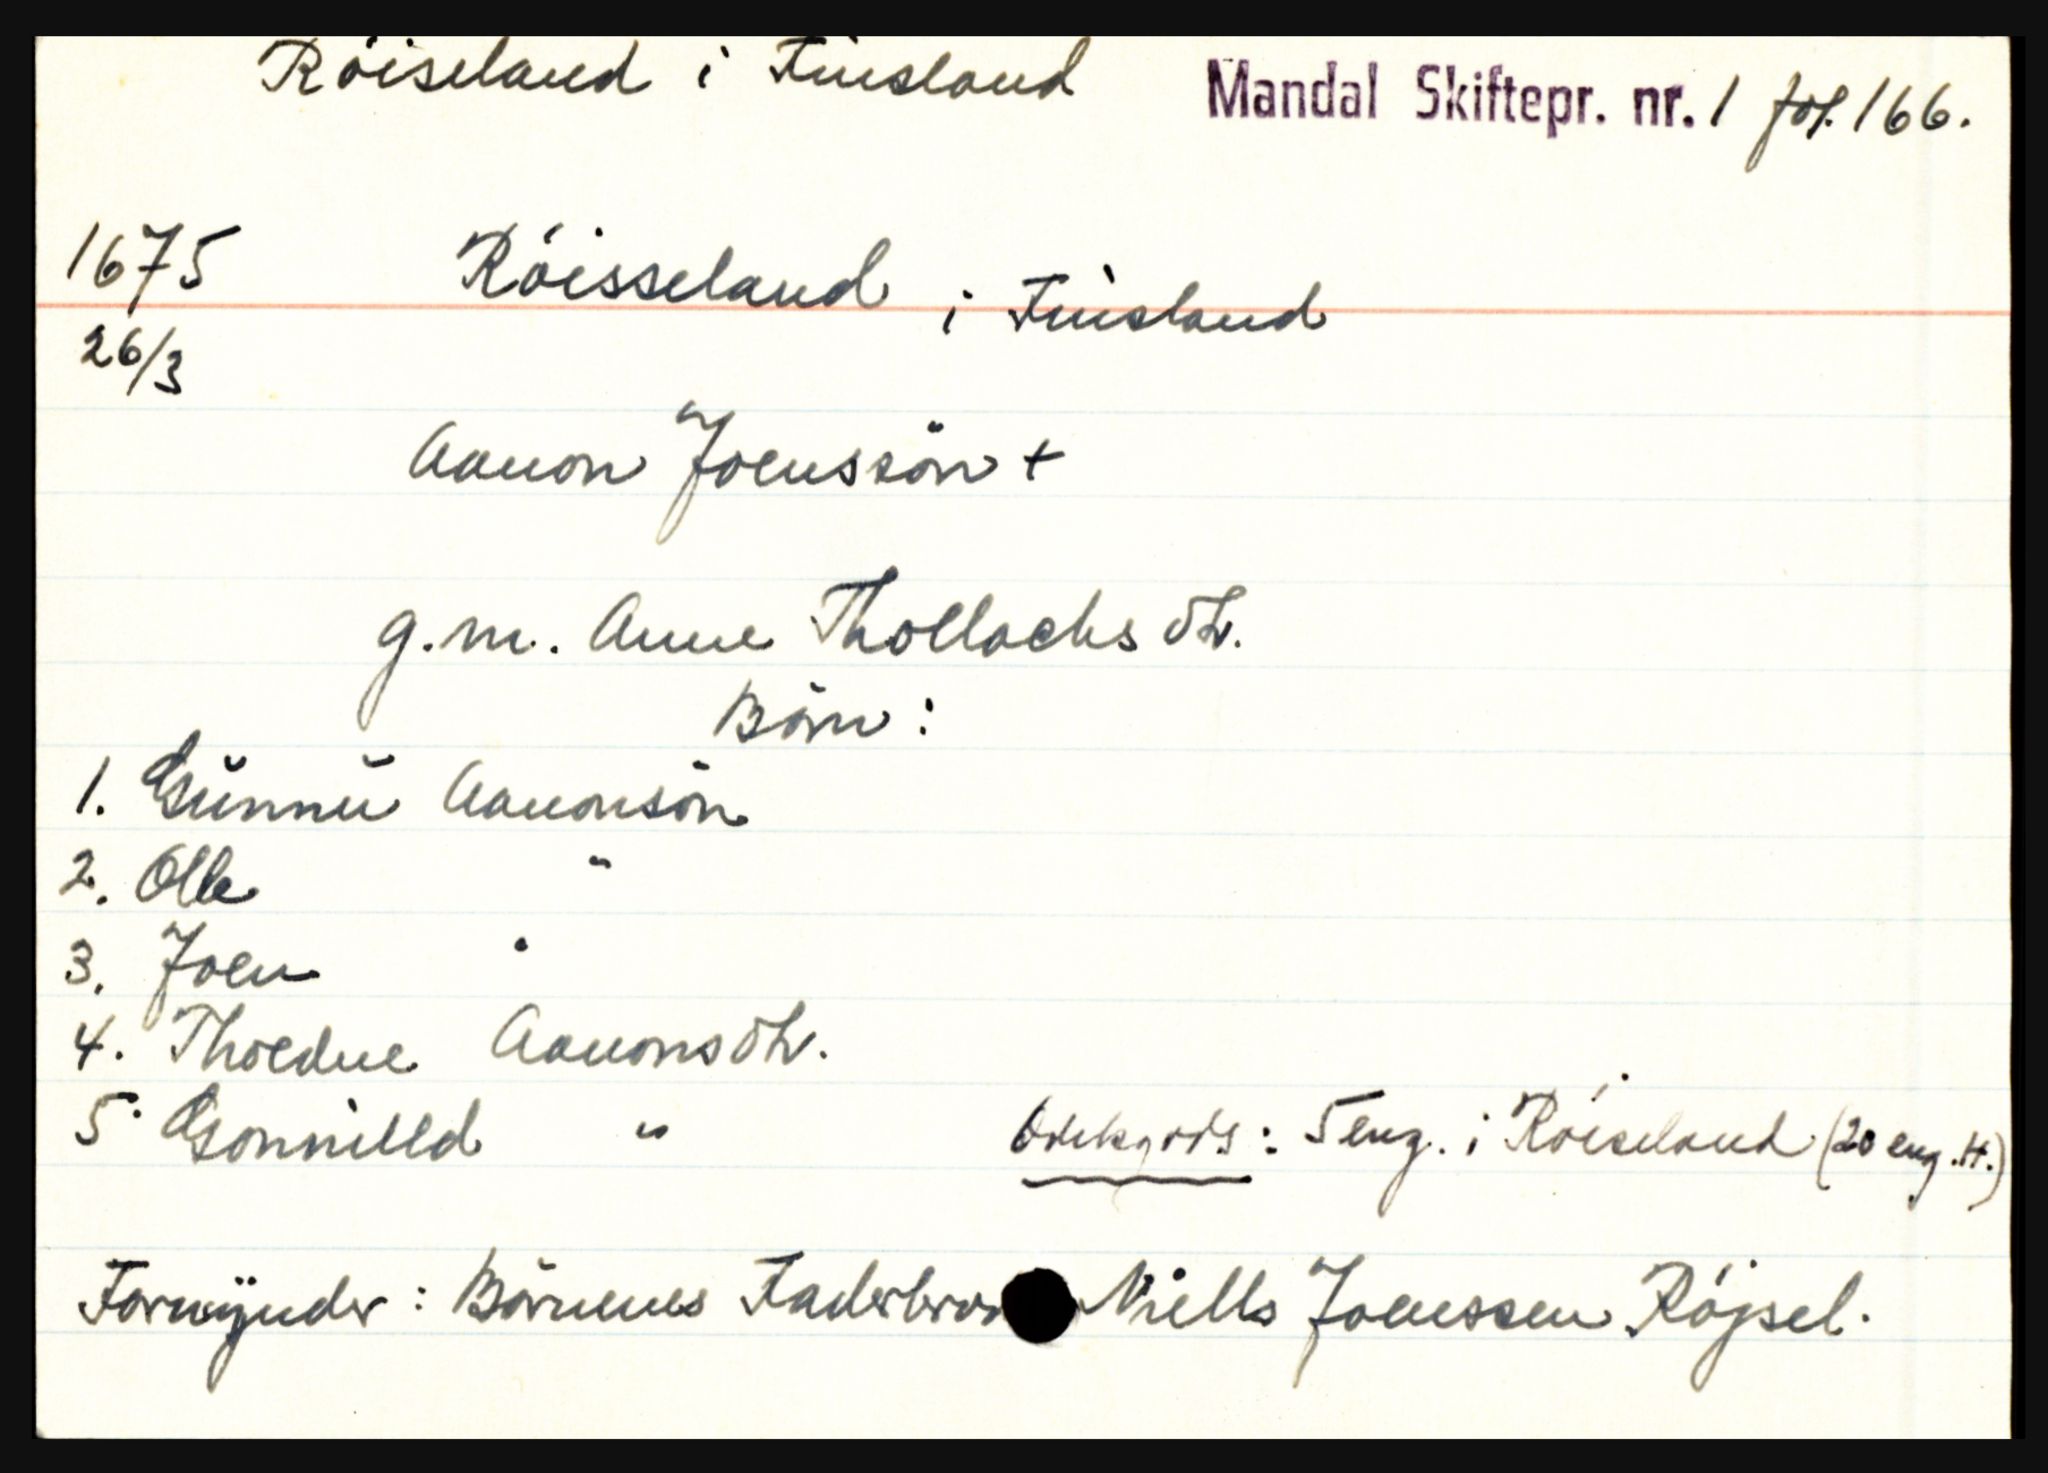 Röiseland i Finsland
Mandal Skiftepr. nr. 1 fol. 166.
1675 Röisseland i Finsland
26/3
Aanon Joenssön +
g.m. Anne Thollachs dtr.
Börn:
1. Gŭnnŭ Aanonsön
2. Olle "
3. Joen "
4. Thoedne Aanons dtr.
5. Gonnilld "
Odelsgods: 5 eng. i Röiseland (20 eng. H.)
Formÿnder: Börnenes Faderbror Niells Joenssen Röjsel.